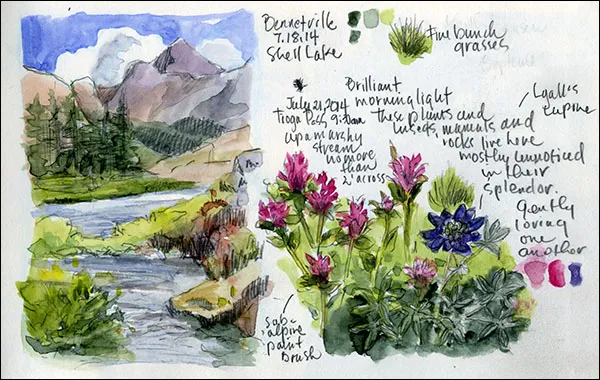 Bennetville
7.18.14
Shell Lake
Fine bunch
grasses
July 21, 2014
Tioga Pass, 9:30am
up a marshy
stream
no more
than
2' across
Brilliant
morning light
These plants and
insects, mammals and
rocks live here
mostly unnoticed
in their
splendor.
gently
loving
one
another
Lyall's
Lupine
Sub-
alpine
paint
brush